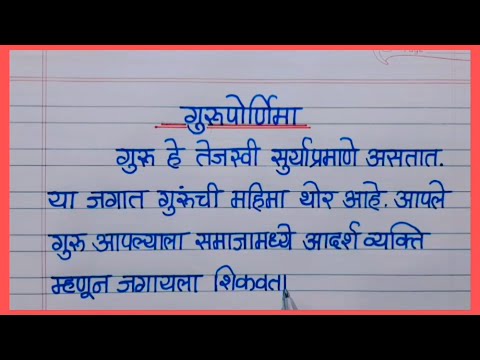 गुरुपोर्णिमा
गुरू हे तेजस्वी सुर्याप्रमाणे असतात.
या जगात गुरूंची महिमा थोर आहे. आपले
गुरू आपल्याला समाजामध्ये आदर्श व्यक्ति
म्हणून जगायला शिकवता